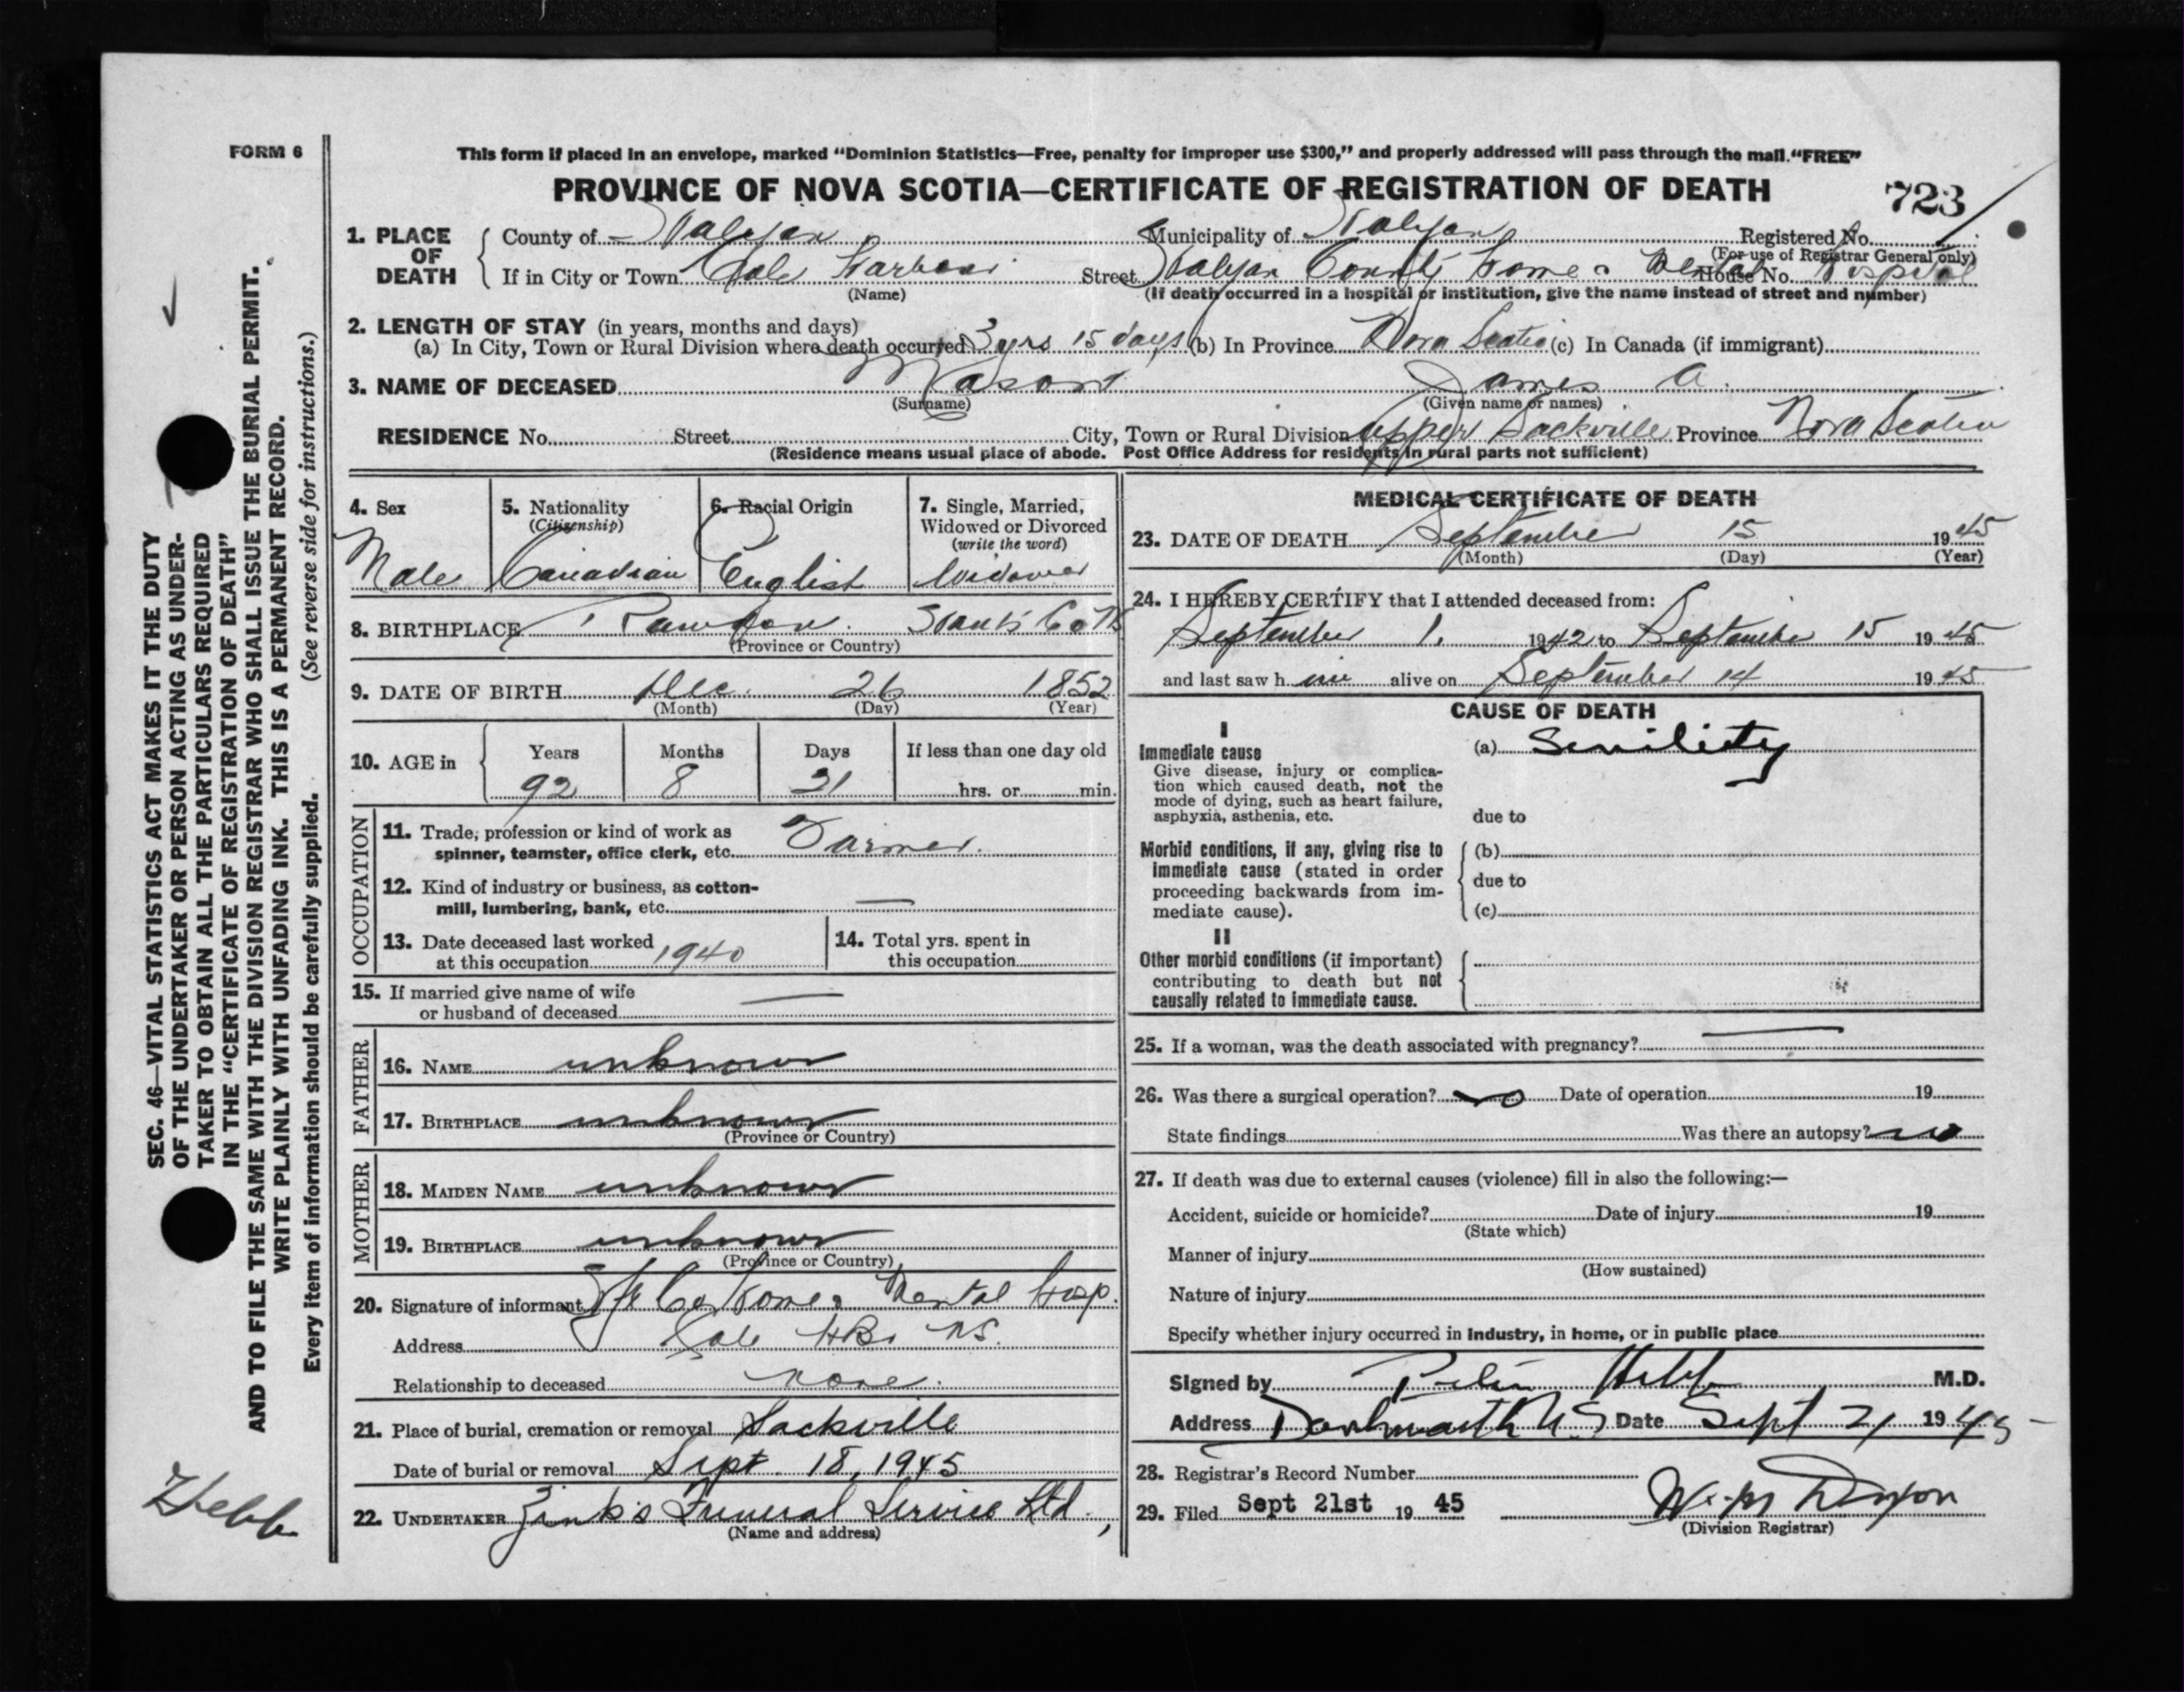 FORM 6
This form if placed in an envelope, marked "Dominion Statistics—Free, penalty for improper use $300," and properly addressed will pass through the mail. "FREE"
PROVINCE OF NOVA SCOTIA—CERTIFICATE OF REGISTRATION OF DEATH 723
1. PLACE OF DEATH County of Halifax Municipality of Halifax Registered No.
(For use of Registrar General only)
If in City or Town Cole Harbour Street Halifax County Home & Mental Hospital House No.
(Name) (If death occurred in a hospital or institution, give the name instead of street and number)
2. LENGTH OF STAY (in years, months and days)
(a) In City, Town or Rural Division where death occurred 3 yrs 15 days (b) In Province Nova Scotia (c) In Canada (if immigrant)
3. NAME OF DECEASED Mason James A.
(Surname) (Given name or names)
RESIDENCE No. Street City, Town or Rural Division Upper Sackville Province Nova Scotia
(Residence means usual place of abode. Post Office Address for residents in rural parts not sufficient)
4. Sex
Male
5. Nationality
(Citizenship)
Canadian
6. Racial Origin
English
7. Single, Married,
Widowed or Divorced
(write the word)
Widower
8. BIRTHPLACE Rawdon Hants Co NS
(Province or Country)
9. DATE OF BIRTH Dec. 26 1852
(Month) (Day) (Year)
10. AGE in
Years Months Days If less than one day old
92 8 21 hrs. or min.
OCCUPATION
11. Trade, profession or kind of work as
spinner, teamster, office clerk, etc. Farmer.
12. Kind of industry or business, as cotton-
mill, lumbering, bank, etc. —
13. Date deceased last worked
at this occupation 1940
14. Total yrs. spent in
this occupation
15. If married give name of wife
or husband of deceased —
FATHER
16. NAME unknown
17. BIRTHPLACE unknown
(Province or Country)
MOTHER
18. MAIDEN NAME unknown
19. BIRTHPLACE unknown
(Province or Country)
20. Signature of informant Hfx Co Home & Mental Hosp.
Address Cole Hbr NS.
Relationship to deceased none.
21. Place of burial, cremation or removal Sackville
Date of burial or removal Sept. 18, 1945
22. UNDERTAKER Zink's Funeral Service Ltd.,
(Name and address)
MEDICAL CERTIFICATE OF DEATH
23. DATE OF DEATH September 15 1945
(Month) (Day) (Year)
24. I HEREBY CERTIFY that I attended deceased from:
September 1. 1942 to September 15 1945
and last saw h im alive on September 14 1945
CAUSE OF DEATH
I
Immediate cause
Give disease, injury or complica-
tion which caused death, not the
mode of dying, such as heart failure,
asphyxia, asthenia, etc.
(a) Senility
due to
Morbid conditions, if any, giving rise to
immediate cause (stated in order
proceeding backwards from im-
mediate cause).
(b)
due to
(c)
II
Other morbid conditions (if important)
contributing to death but not
causally related to immediate cause.
25. If a woman, was the death associated with pregnancy? —
26. Was there a surgical operation? no Date of operation 19
State findings Was there an autopsy? no
27. If death was due to external causes (violence) fill in also the following:—
Accident, suicide or homicide? Date of injury 19
(State which)
Manner of injury
(How sustained)
Nature of injury
Specify whether injury occurred in industry, in home, or in public place
Signed by Hebb M.D.
Address Dartmouth N.S. Date Sept 21 1945
28. Registrar's Record Number
29. Filed Sept 21st 19 45
(Division Registrar)
SEC. 46—VITAL STATISTICS ACT MAKES IT THE DUTY
OF THE UNDERTAKER OR PERSON ACTING AS UNDER-
TAKER TO OBTAIN ALL THE PARTICULARS REQUIRED
IN THE "CERTIFICATE OF REGISTRATION OF DEATH"
AND TO FILE THE SAME WITH THE DIVISION REGISTRAR WHO SHALL ISSUE THE BURIAL PERMIT.
WRITE PLAINLY WITH UNFADING INK. THIS IS A PERMANENT RECORD.
Every item of information should be carefully supplied. (See reverse side for instructions.)
Hebb